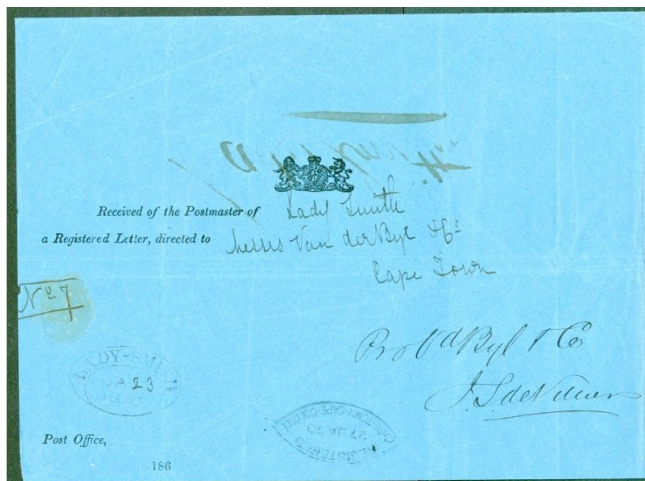 Received of the Postmaster of Lady Smith
a Registered Letter, directed to Messrs Van der Byl & Co
Cape Town
No 7
Pro V d Byl & Co
J. S. de Villiers
LADY-SMITH
JA 23
REGISTERED
27 JA 70
CAPE-TOWN-CAPE-COLONY
Post Office,
186